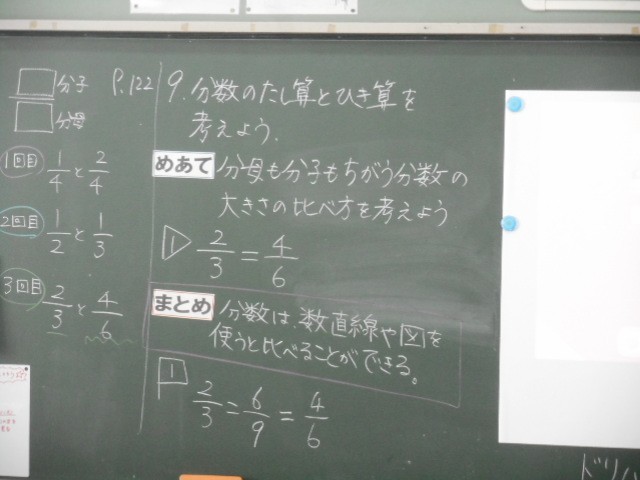 分子
分母
P.122
1回目 1/4と2/4
2回目 1/2と1/3
3回目 2/3と4/6
9.分数のたし算とひき算を
考えよう.
めあて 分母も分子もちがう分数の
大きさの比べ方を考えよう
1 2/3=4/6
まとめ 分数は、数直線や図を
使うと比べることができる。
1 2/3=6/9=4/6
ドリル